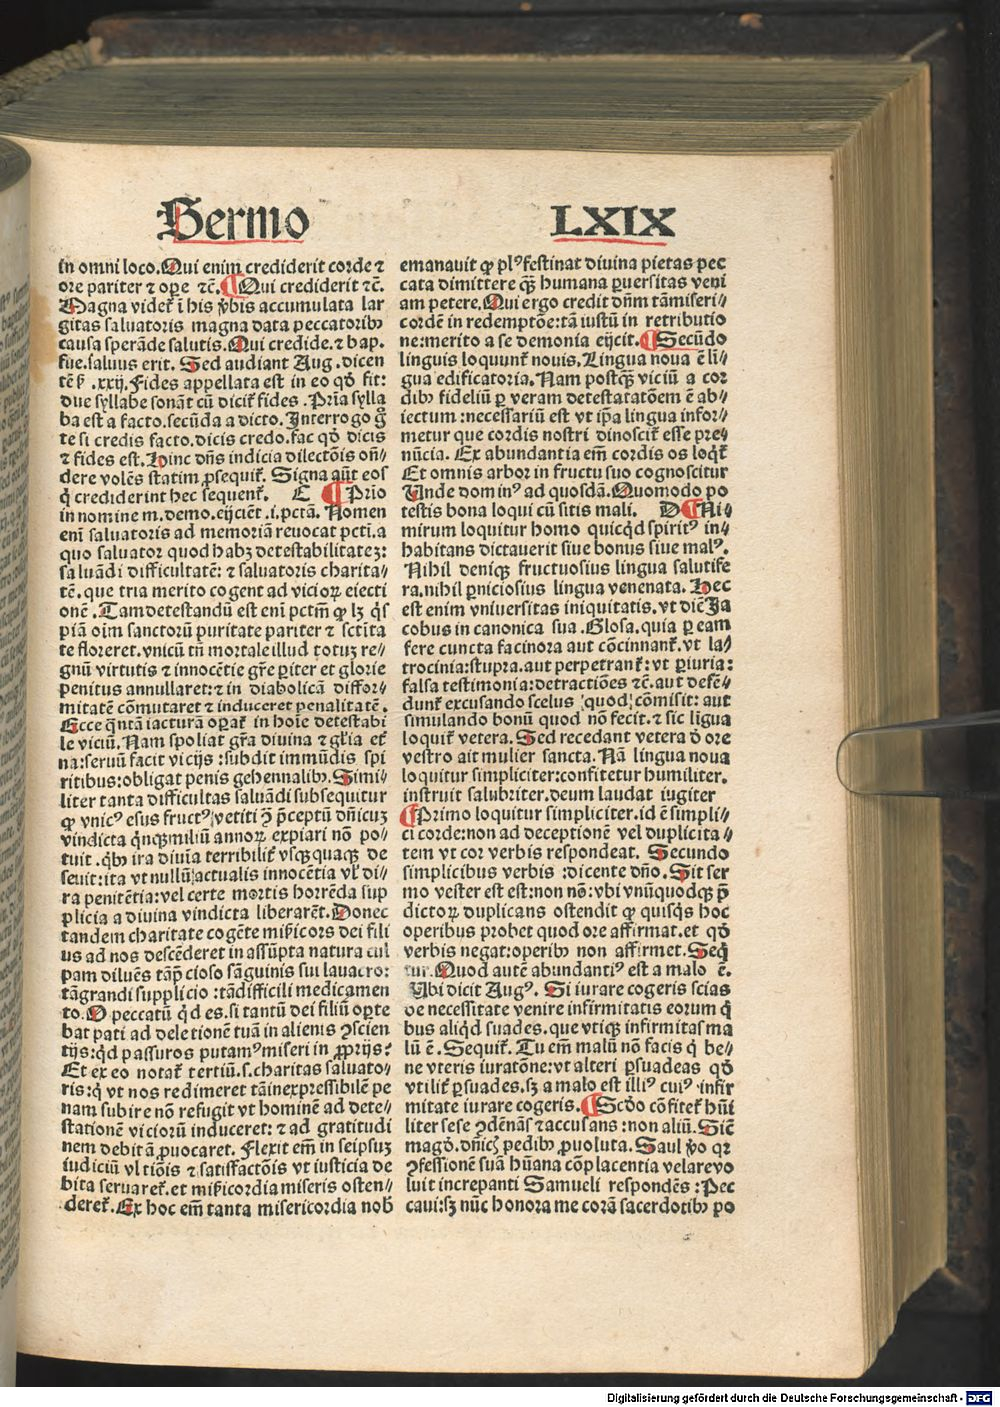 Sermo
LXIX
in omni loco. Qui enim crediderit corde ⁊
ore pariter ⁊ oꝑe ⁊c̄. ¶ Qui crediderit ⁊c̄.
Magna videt᷑ ī his v̓bis accumulata lar
gitas saluatoris magna data peccatoribꝰ
causa sperāde salutis. Qui credide. ⁊ bap.
fue. saluus erit. Sed audiant Aug. dicen
.xxij. Fides appellata est in eo qd̓ fit:
due syllabe sonāt cū dicit᷑ fides. Prīa sylla
ba est a facto. secūda a dicto. Interrogo g̊
te si credis facto. dicis credo. fac qd̓ dicis
⁊ fides est. Hinc dn̄s indicia dilectōis on̄⸗
dere volēs statim ꝓsequit᷑. Signa aūt eos
q̇ crediderint hec sequent᷑. C ¶ Prīo
in nomine m. demo. eijciēt .i. pctā. Nomen
enī saluatoris ad memoriā reuocat pcti. a
quo saluator quod habꝫ detestabilitateꝫ:
saluādi difficultatē: ⁊ saluatoris charita⸗
tē. que tria merito cogent ad vicioꝝ eiecti
onē. Tam detestandū est enī pctm̄ ꝙ lꝫ q̇s
piā oīm sanctorū puritate pariter ⁊ sctīta
te floreret. vnicū tn̄ mortale illud totuꝫ re⸗
gnū virtutis ⁊ innocētie gr̄e ꝑiter et glorie
penitus annullaret: ⁊ in diabolicā diffor⸗
mitatē cōmutaret ⁊ induceret penalitatē.
Ecce q̄ntā iacturā oꝑat᷑ in hoīe detestabi
le viciū. Nam spoliat gr̄a diuina ⁊ gl̓ia et᷑
na: seruū facit vicijs: subdit immūdis spi
ritibus: obligat penis gehennalibꝰ. Simi⸗
liter tanta difficultas saluādi subsequitur
ꝙ vnicꝰ esus fructꝰ vetiti ꝯ̄ p̄ceptū dn̄icuꝫ
vindicta q̇nqꝫ miliū annoꝝ expiari nō po⸗
tuit. q̇bꝰ ira diuīa terribilit᷑ vsqꝫquaqꝫ de
seuit: ita vt nullū actualis innocētia vl̓ di⸗
ra penitētia: vel certe mortis horrēda sup
plicia a diuina vindicta liberarēt. Donec
tandem charitate cogēte misḉicors dei fili
us ad nos descēderet in assūpta natura cul
pam diluēs tāp̄cioso sāguinis sui lauacro:
tāgrandi supplicio: tādifficili medicamen
to. O peccatū q̇d es. si tantū dei filiū oꝑte
bat pati ad deletionē tuā in alienis ꝯscien
tijs: q̇d passuros putamꝰ miseri in ꝓprijs?
Et ex eo notat᷑ tertiū. s. charitas saluato⸗
ris: q̇ vt nos redimeret tāinexpressibilē pe
nam subire nō refugit vt hominē ad dete⸗
stationē viciorū induceret: ⁊ ad gratitudi
nem debitā ꝓuocaret. Flexit em̄ in seipsuꝫ
iudiciū vltiōis ⁊ satisfactōis vt iusticia de
bita seruaret᷑. et mīcordia miseris osten⸗
deret᷑. Ex hoc em̄ tanta misericordia nob̄
emanauit ꝙ plꝰ festinat diuina pietas pec
cata dimittere q̄ꝫ humana ꝑuersitas veni
am petere. Qui ergo credit dn̄m tāmiseri⸗
cordē in redemptōe: tā iustū in retributio
ne: merito a se demonia eijcit. ¶ Secūdo
linguis loquunt᷑ nouis. Lingua noua ē li⸗
gua edificatoria. Nam postq̄ꝫ viciū a cor
dibꝰ fideliū ꝑ veram detestatatōem ē ab⸗
iectum: necessariū est vt ip̄a lingua infor⸗
metur que cordis nostri dinoscit᷑ esse pre⸗
nūcia. Ex abundantia em̄ cordis os loq̇t᷑
Et omnis arbor in fructu suo cognoscitur
Vnde dominꝰ ad quosdā. Quomodo po
testis bona loqui cū sitis mali. D ¶ Ni⸗
mirum loquitur homo quicq̇d spiritꝰ in⸗
habitans dictauerit siue bonus siue malꝰ.
Nihil deniqꝫ fructuosius lingua salutife
ra. nihil ꝑniciosius lingua venenata. Hec
est enim vniuersitas iniquitatis. vt diēIa
cobus in canonica sua. Glosa. quia ꝑ eam
fere cuncta facinora aut cōcinnant᷑. vt la⸗
trocinia: stupra. aut perpetrant᷑: vt ꝑiuria:
falsa testimonia: detractiōes ⁊c̄. aut defē⸗
dunt᷑ excusando scelus quod cōmisit: aut
simulando bonū quod nō fecit. ⁊ sic ligua
loquit᷑ vetera. Sed recedant vetera d̓ ore
vestro ait mulier sancta. Nā lingua noua
loquitur simpliciter: confitetur humiliter.
instruit salubriter. deum laudat iugiter
¶ Primo loquitur simpliciter. id ē simpli⸗
ci corde: non ad deceptionē vel duplicita⸗
tem vt cor verbis respondeat. Secundo
simplicibus verbis: dicente dn̄o. Sit ser
mo vester est est: non nō: vbi vnūquodqꝫ p̄
dictoꝝ duplicans ostendit ꝙ quisq̇s hoc
operibus probet quod ore affirmat. et qd̓
verbis negat: operibꝰ non affirmet. Seq̇
tur. Quod autē abundantiꝰ est a malo ē.
Vbi dicit Augꝰ. Si iurare cogeris scias
de necessitate venire infirmitatis eorum q̇
bus aliq̇d suades. que vtiqꝫ infirmitas ma
lū ē. Sequit᷑. Tu em̄ malū nō facis q̇ be⸗
ne vteris iuratōne: vt alteri ꝑsuadeas qd̓
vtilit᷑ ꝑsuades. sꝫ a malo est illiꝰ cuiꝰ infir
mitate iurare cogeris. ¶ Scd̓o cōfitet᷑ hūi
liter sese ꝯdēnās ⁊ accusans: non aliū. Siē
magd̓. dn̄icꝭ pedibꝰ ꝓuoluta. Saul v̓o qꝛ
ꝯfessionē suā hūana cōplacentia velare vo
luit increpanti Samueli respondēs: Pec
caui: sꝫ nūc honora me corā sacerdotibꝰ po
Digitalisierung gefördert durch die Deutsche Forschungsgemeinschaft - DFG